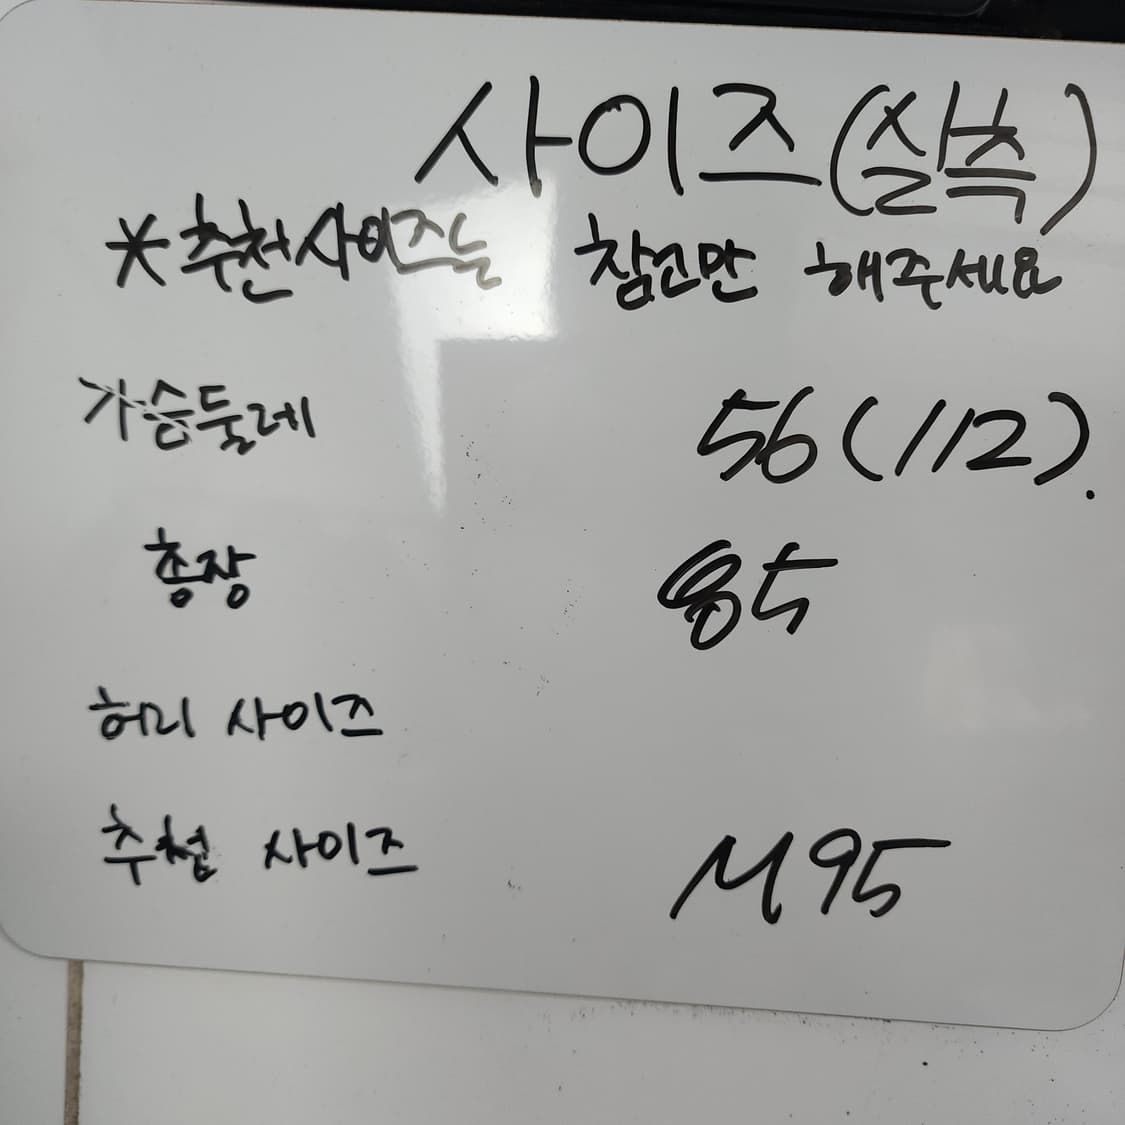 사이즈(실측)
*추천사이즈는 참고만 해주세요
가슴둘레 56(112).
총장 85
허리 사이즈
추천 사이즈 M95